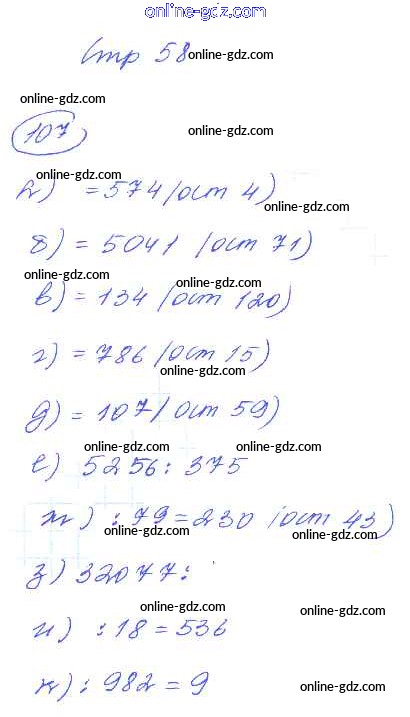 online-gdz.com
Стр 58
online-gdz.com
online-gdz.com
107
online-gdz.com
online-gdz.com
а) = 574 (ост 4)
б) = 5041 (ост 71)
online-gdz.com
online-gdz.com
в) = 134 (ост 120)
г) = 786 (ост 15)
online-gdz.com
д) = 107 (ост 59)
online-gdz.com
online-gdz.com
е) 5256 : 375
ж) : 79 = 230 (ост 43)
online-gdz.com
online-gdz.com
з) 32077 :
online-gdz.com
online-gdz.com
и) : 18 = 536
к) : 982 = 9
online-gdz.com
online-gdz.com